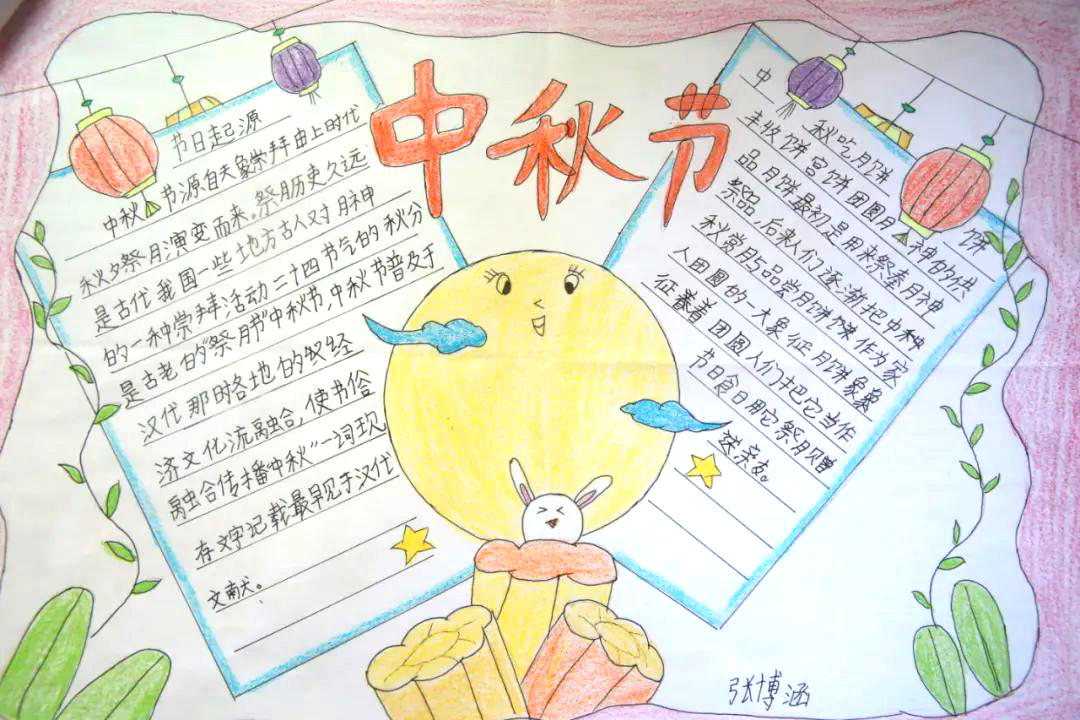 中秋节
节日起源
中秋节源自天象崇拜由上时代
秋夕祭月演变而来.祭月历史久远
是古代我国一些地方古人对月神
的一种崇拜活动二十四节气的秋分
是古老的“祭月节”中秋节,中秋节普及于
汉代那时各地的
经
济文化流融合,使节俗
融合传播中秋”一词现
存文字记载最早见于汉代
文献。
中
秋吃月饼
饼
丰收饼宫饼团圆月
品月饼最初是用来祭奉月神的供
祭品,后来人们逐渐把中秋
秋赏月与品尝月饼饼作为家
人团圆的一大象征月饼象
征着着团圆人们把它当作
节日食日用它祭月赠
送亲友。
张博涵